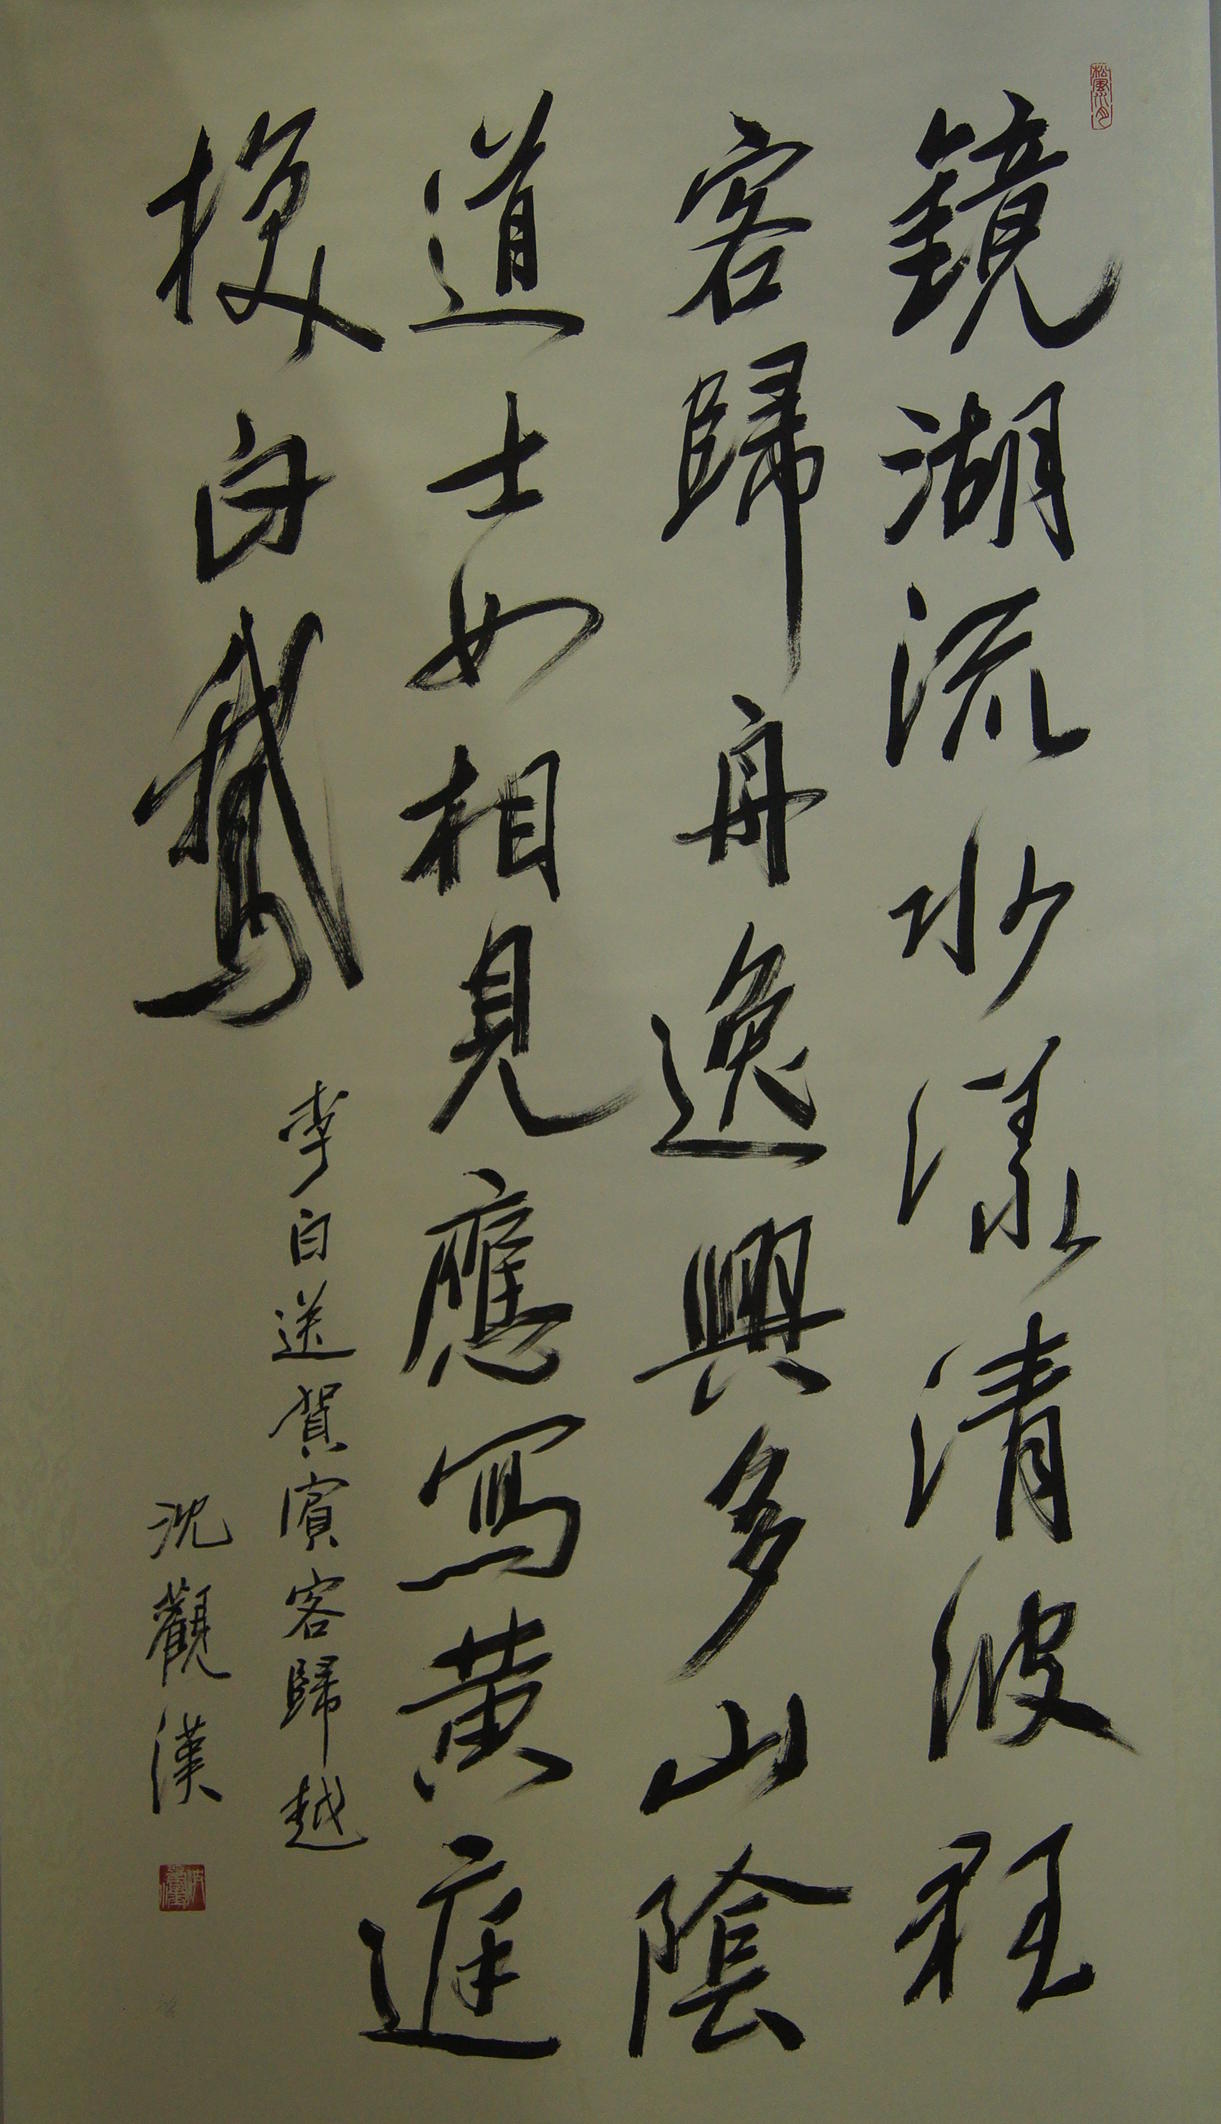 松風水月
鏡湖流水漾清波狂
客歸舟逸興多山陰
道士如相見應寫黄庭
換白鵝
李白送賀賓客歸越
沈觀漢